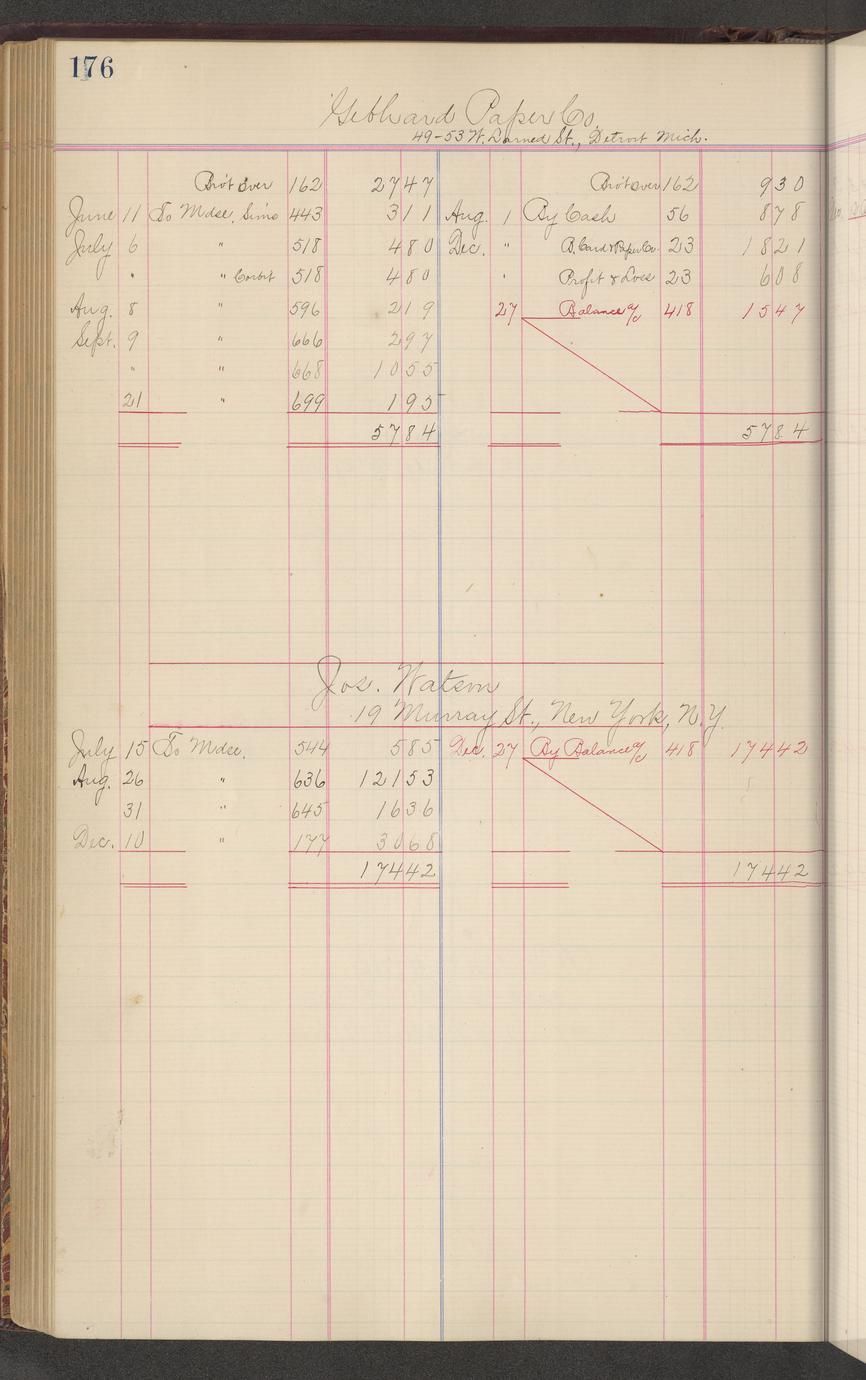 176
Gebhard Paper Co.
49-53 W. Larned St., Detroit Mich.
Bro't over 162 2747 Bro't over 162 930
June 11 To Mdse, Sims 443 311 Aug. 1 By Cash 56 878
July 6 " 518 480 Dec. " B. Card & Paper Co. 23 1821
" " Corbit 518 480 " Profit & Loss 23 608
Aug. 8 " 596 219 27 Balance a/c 418 1547
Sept. 9 " 666 297
" " 668 1055
21 " 699 195
5784 5784
Jos. Watson
19 Murray St., New York, N.Y.
July 15 To Mdse. 544 585 Dec. 27 By Balance a/c 418 17442
Aug. 26 " 636 12153
31 " 645 1636
Dec. 10 " 177 3068
17442 17442